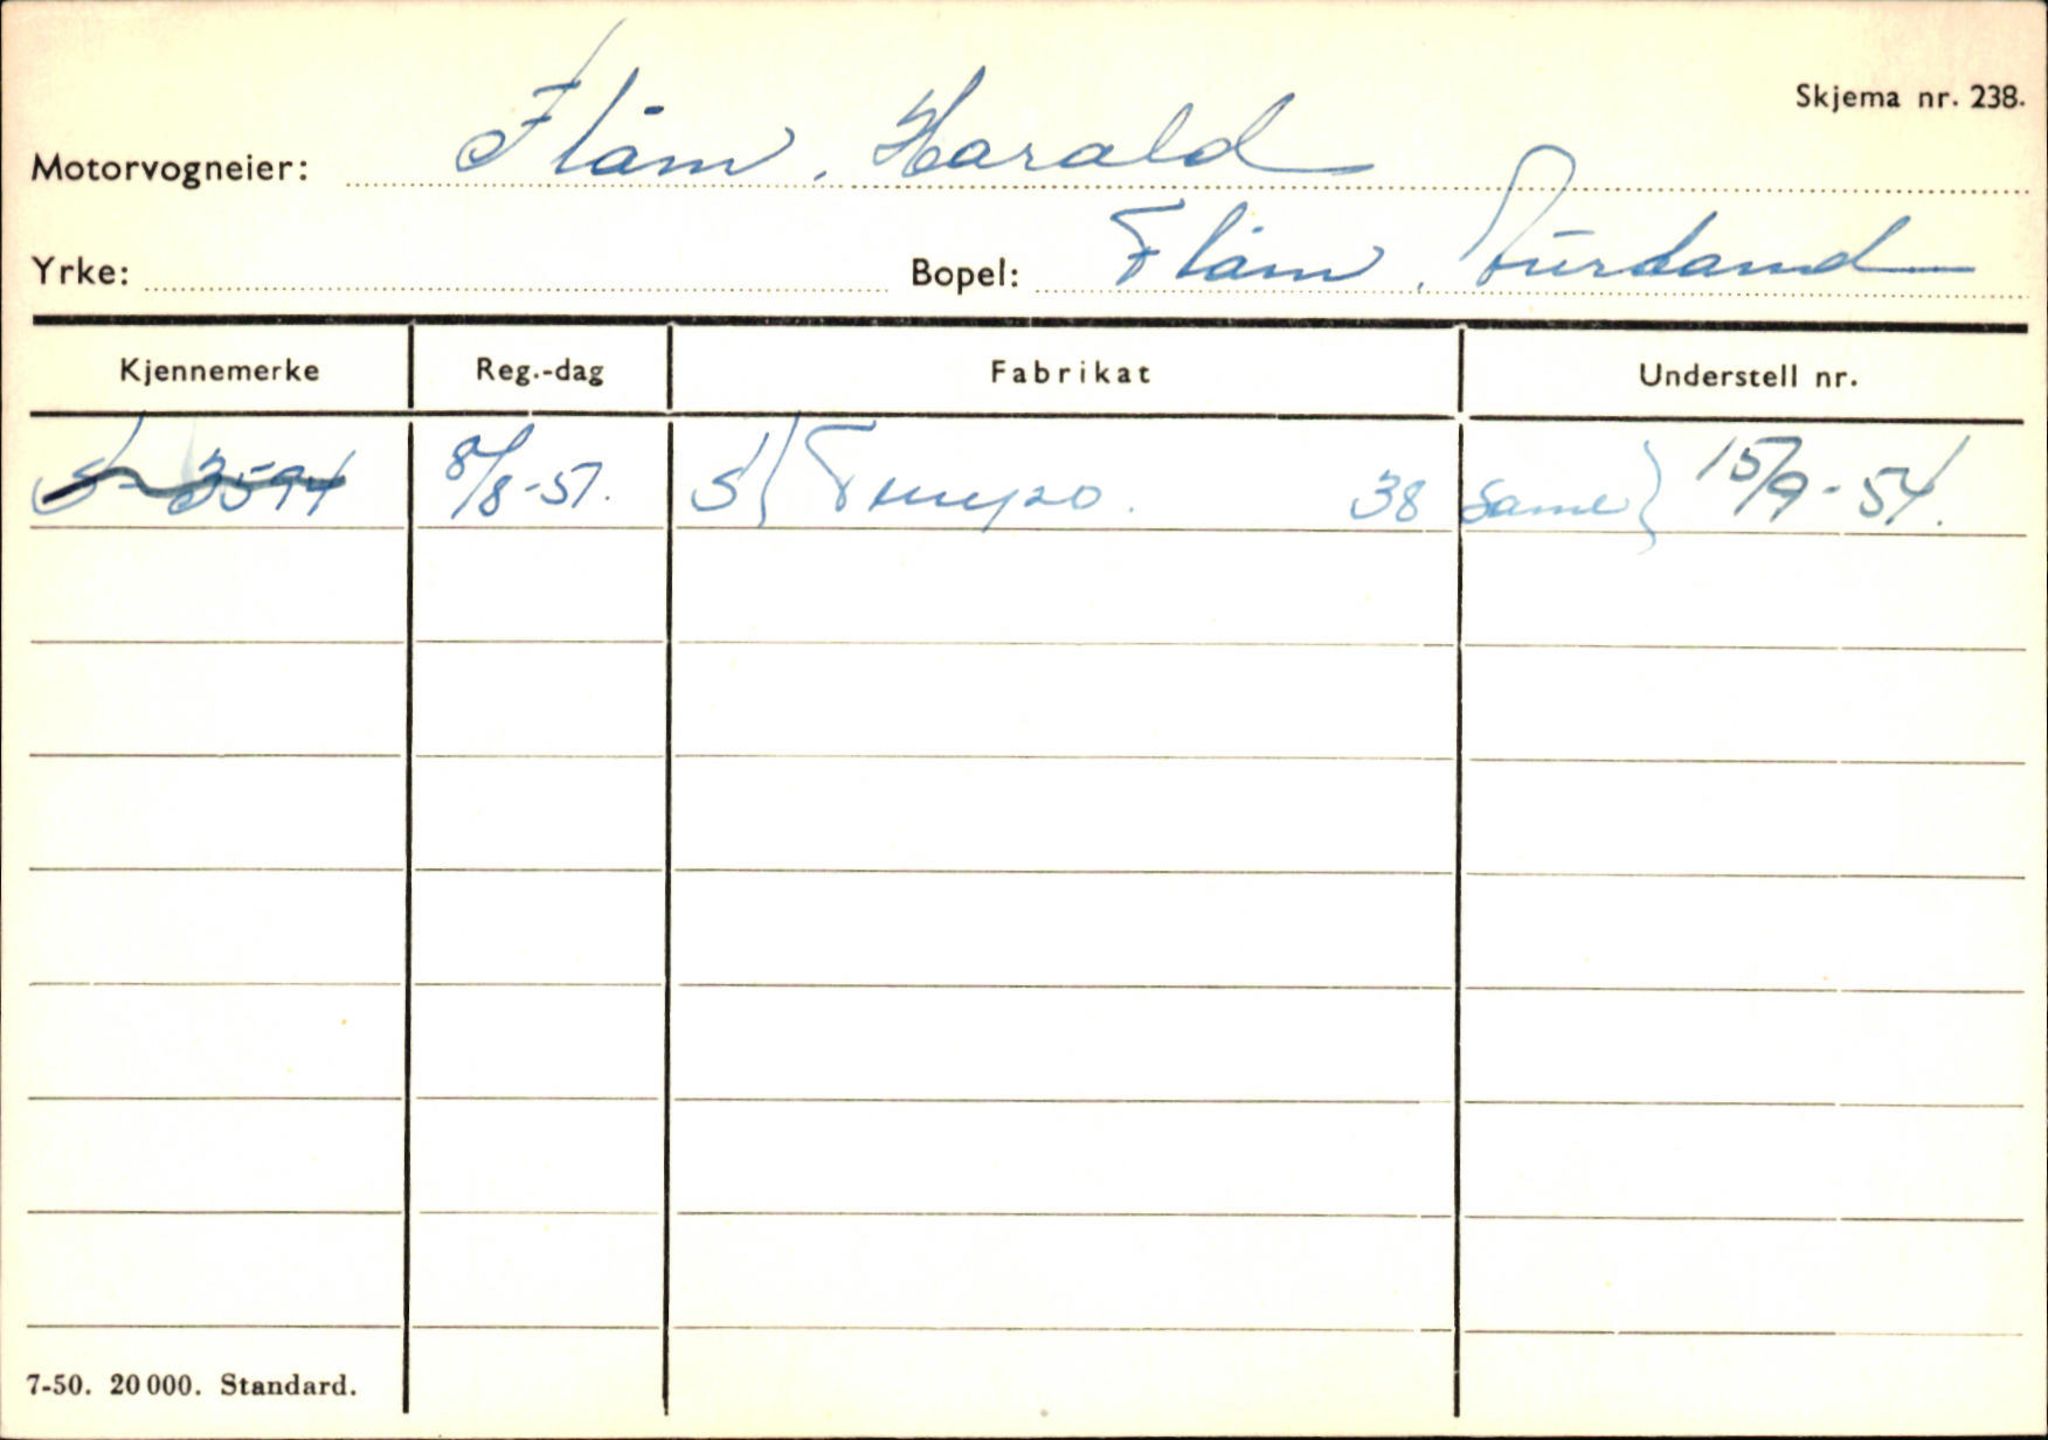 Skjema nr. 238.
Motorvogneier: Flåm, Harald
Yrke: Bopel: Flåm, Aurland
Kjennemerke Reg.-dag Fabrikat Understell nr.
S-3594 8/8-51. S} Tempo. 38 same} 15/9-54.
7-50. 20 000. Standard.